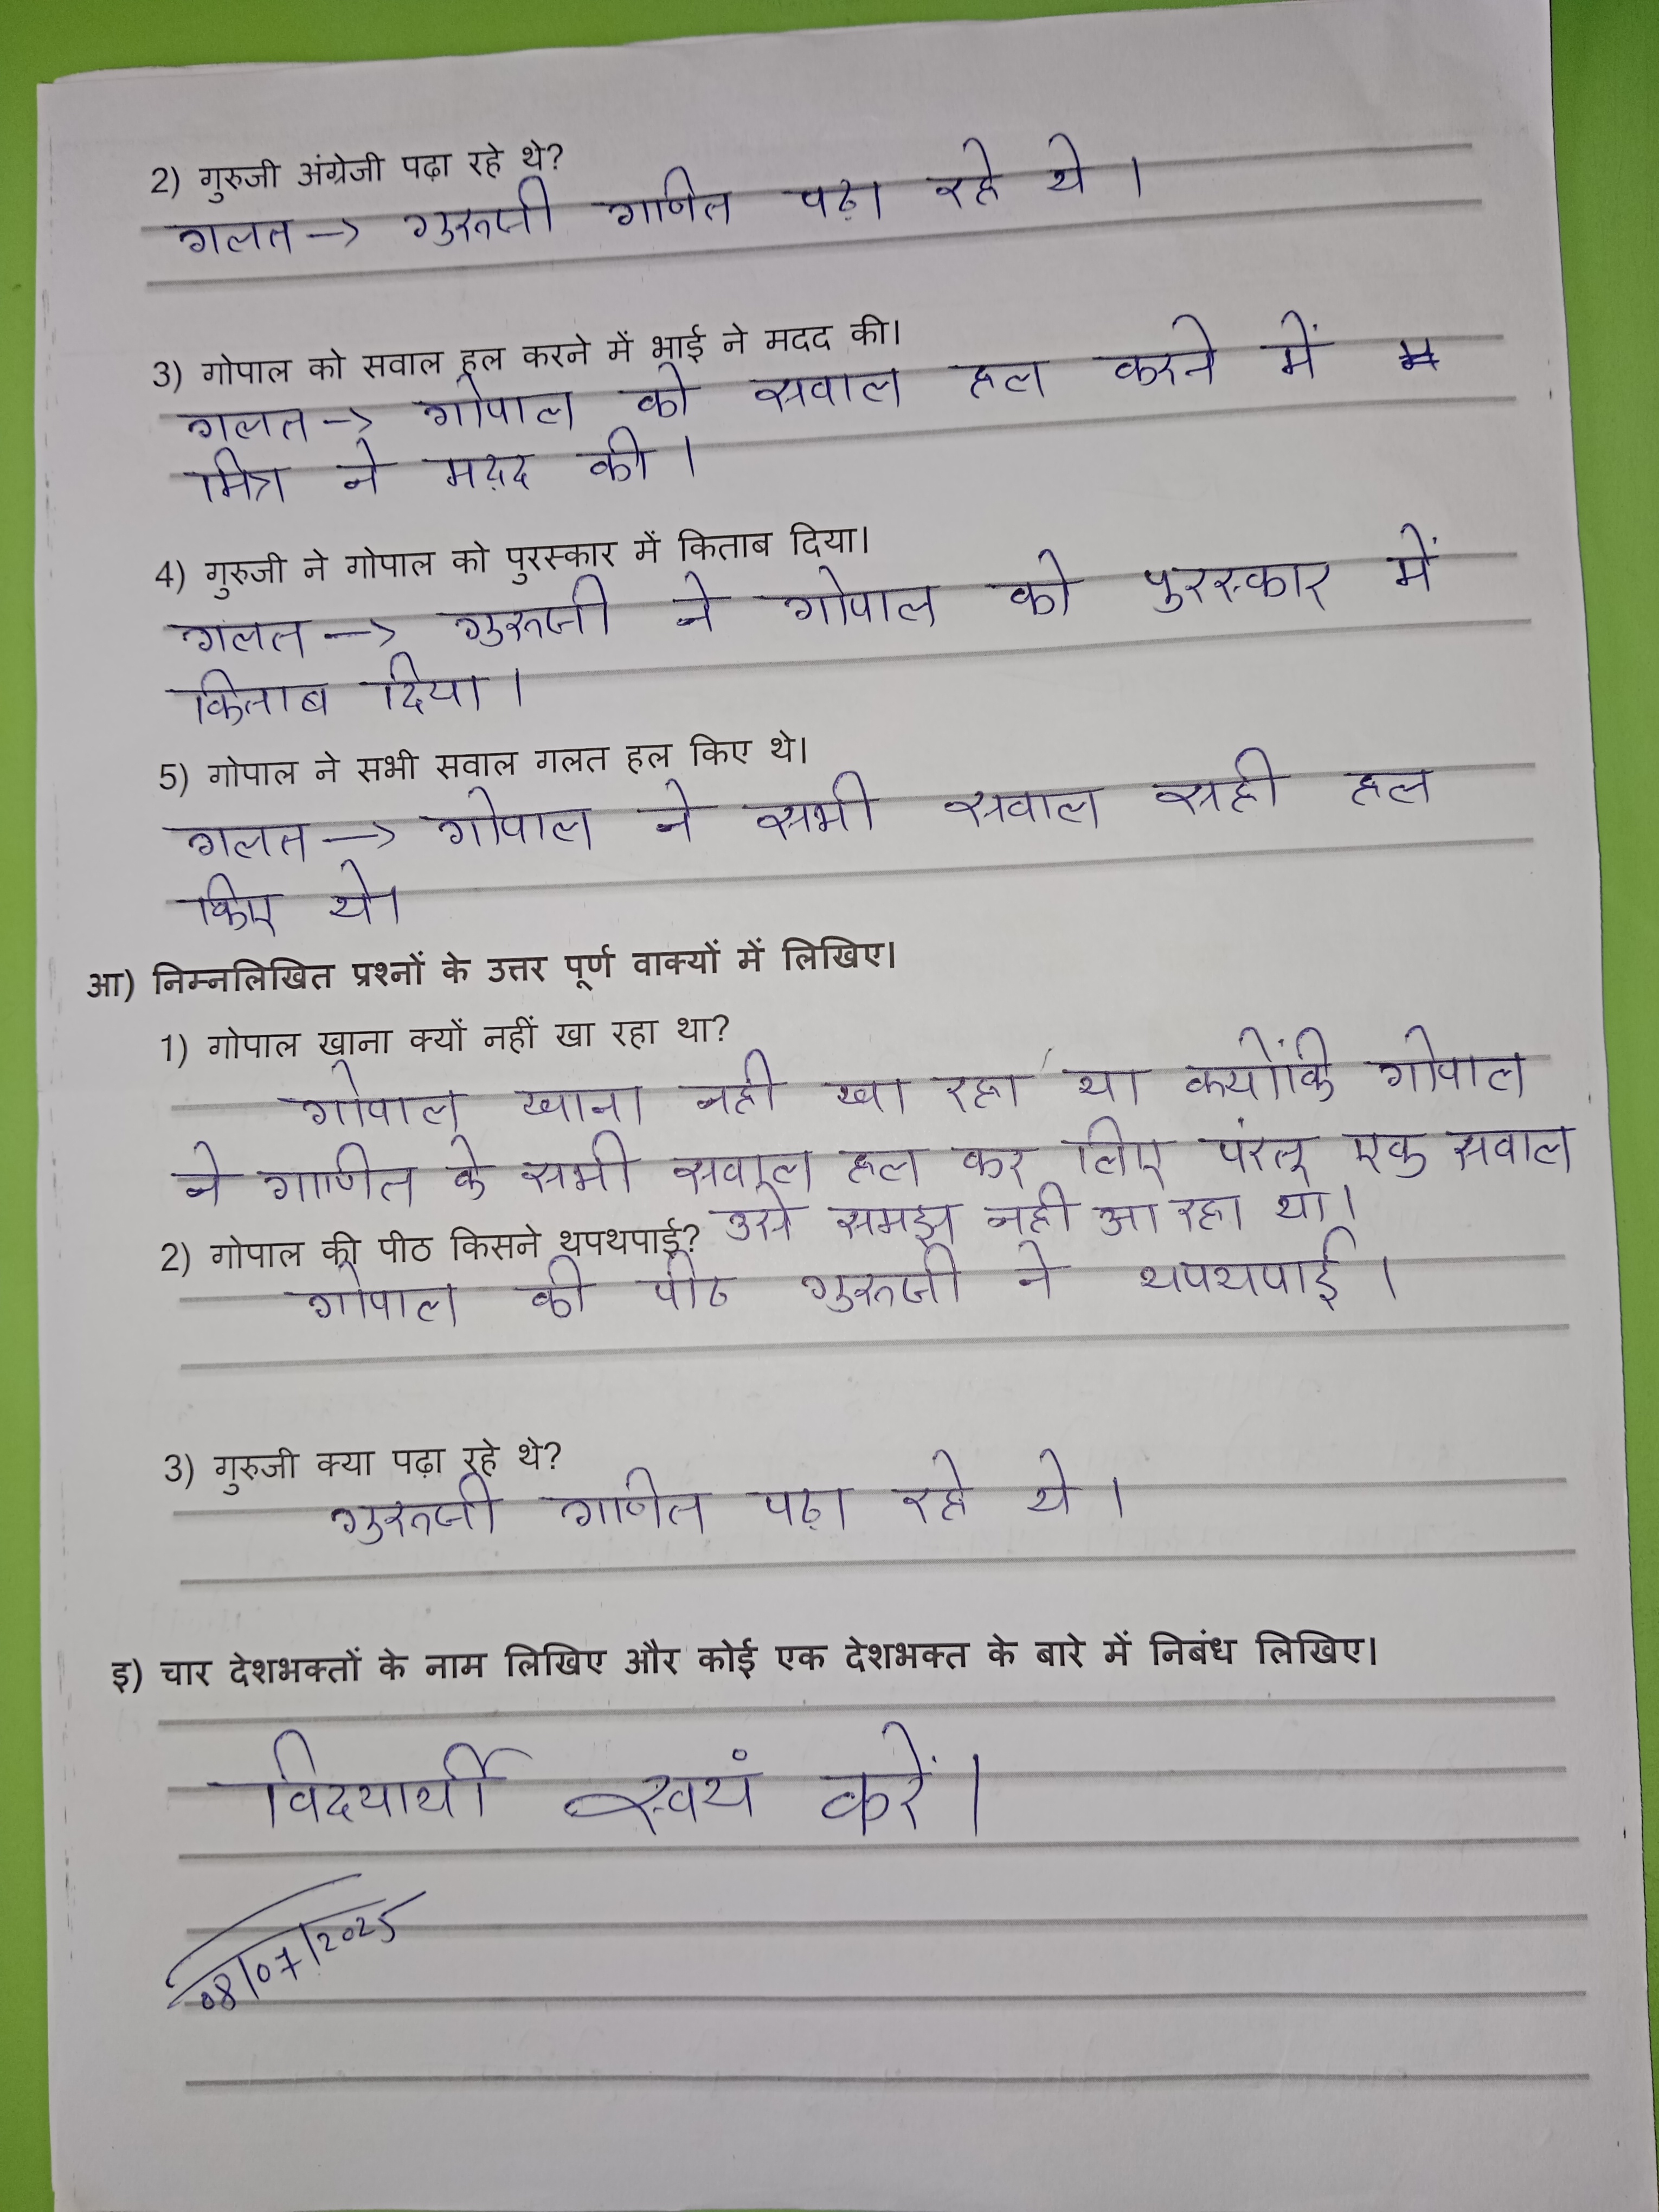 2) गुरुजी अंग्रेजी पढ़ा रहे थे?
गलत → गुरुजी गणित पढ़ा रहे थे ।
3) गोपाल को सवाल हल करने में भाई ने मदद की।
गलत → गोपाल को सवाल हल करने में
मित्र ने मदद की ।
4) गुरुजी ने गोपाल को पुरस्कार में किताब दिया।
गलत → गुरुजी ने गोपाल को पुरस्कार में
किताब दिया ।
5) गोपाल ने सभी सवाल गलत हल किए थे।
गलत → गोपाल ने सभी सवाल सही हल
किए थे।
आ) निम्नलिखित प्रश्नों के उत्तर पूर्ण वाक्यों में लिखिए।
1) गोपाल खाना क्यों नहीं खा रहा था?
गोपाल खाना नही खा रहा था क्योंकि गोपाल
ने गणित के सभी सवाल हल कर लिए परंतू एक सवाल
उसे समझ नही आ रहा था।
2) गोपाल की पीठ किसने थपथपाई?
गोपाल की पीठ गुरुजी ने थपथपाई ।
3) गुरुजी क्या पढ़ा रहे थे?
गुरुजी गणित पढ़ा रहे थे ।
इ) चार देशभक्तों के नाम लिखिए और कोई एक देशभक्त के बारे में निबंध लिखिए।
विदयार्थी स्वयं करें।
08/07/2025